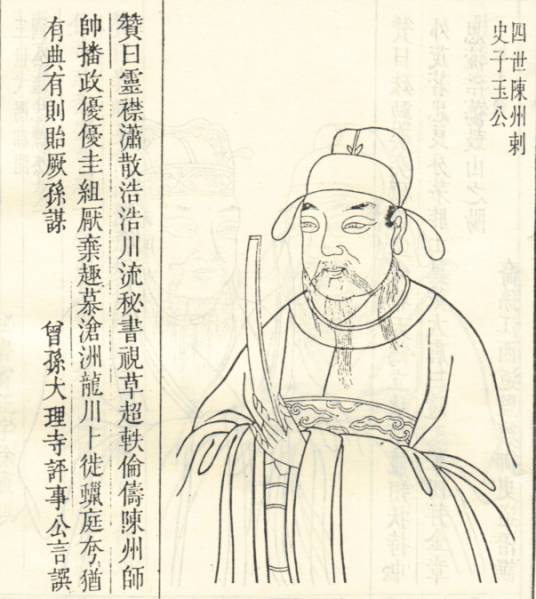 四世陳州刺
史子玉公
贊曰靈襟瀟散浩浩川流秘書視草超軼倫儔陳州師
帥播政優優圭組厭棄趣慕滄洲龍川卜徙蠟庭夯猶
有典有則貽厥孫謀 曾孫大理寺評事公言譔